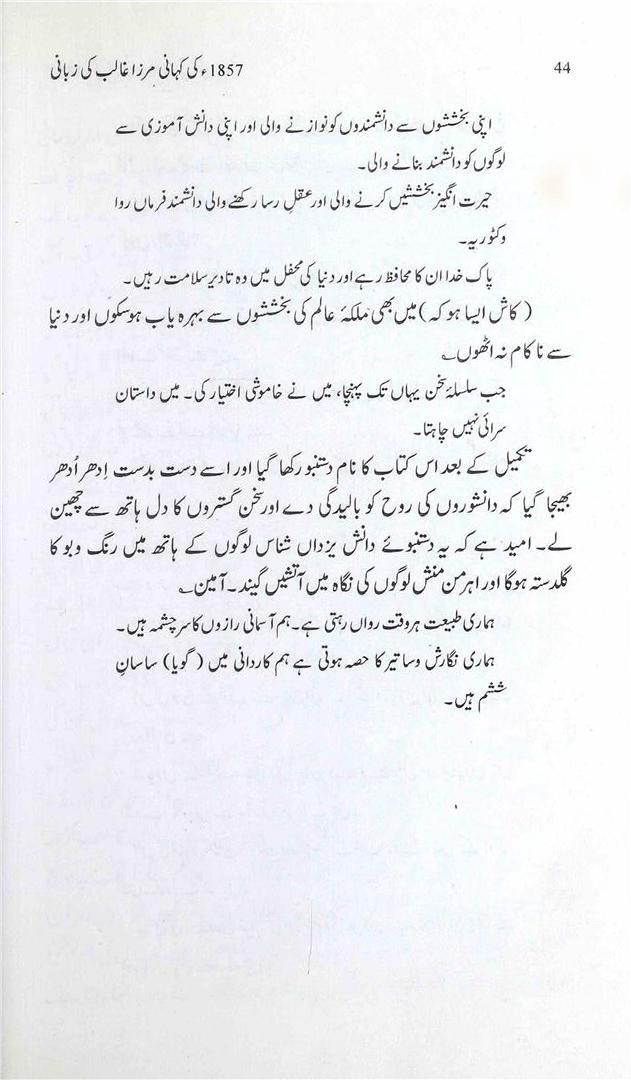 44
1857ء کی کہانی مرزا غالب کی زبانی
اپنی بخششوں سے دانشمندوں کو نوازنے والی اور اپنی دانش آموزی سے
لوگوں کو دانشمند بنانے والی۔
حیرت انگیز بخششیں کرنے والی اور عقلِ رسا رکھنے والی دانشمند فرماں روا
وکٹوریہ۔
پاک خدا ان کا محافظ رہے اور دنیا کی محفل میں وہ تادیر سلامت رہیں۔
(کاش ایسا ہو کہ) میں بھی ملکۂ عالم کی بخششوں سے بہرہ یاب ہوسکوں اور دنیا
سے ناکام نہ اٹھوں؎
جب سلسلۂ سخن یہاں تک پہنچا، میں نے خاموشی اختیار کی۔ میں داستان
سرائی نہیں چاہتا۔
تکمیل کے بعد اس کتاب کا نام دستنبو رکھا گیا اور اسے دست بدست اِدھر اُدھر
بھیجا گیا کہ دانشوروں کی روح کو بالیدگی دے اور سخن گستروں کا دل ہاتھ سے چھین
لے۔ امید ہے کہ یہ دستنبوئے دانش یزداں شناس لوگوں کے ہاتھ میں رنگ و بو کا
گلدستہ ہوگا اور اہرمن منش لوگوں کی نگاہ میں آتشیں گیند۔ آمین؎
ہماری طبیعت ہر وقت رواں رہتی ہے۔ ہم آسمانی رازوں کا سرچشمہ ہیں۔
ہماری نگارش دساتیر کا حصہ ہوتی ہے ہم کاردانی میں (گویا) ساسانِ
ششم ہیں۔